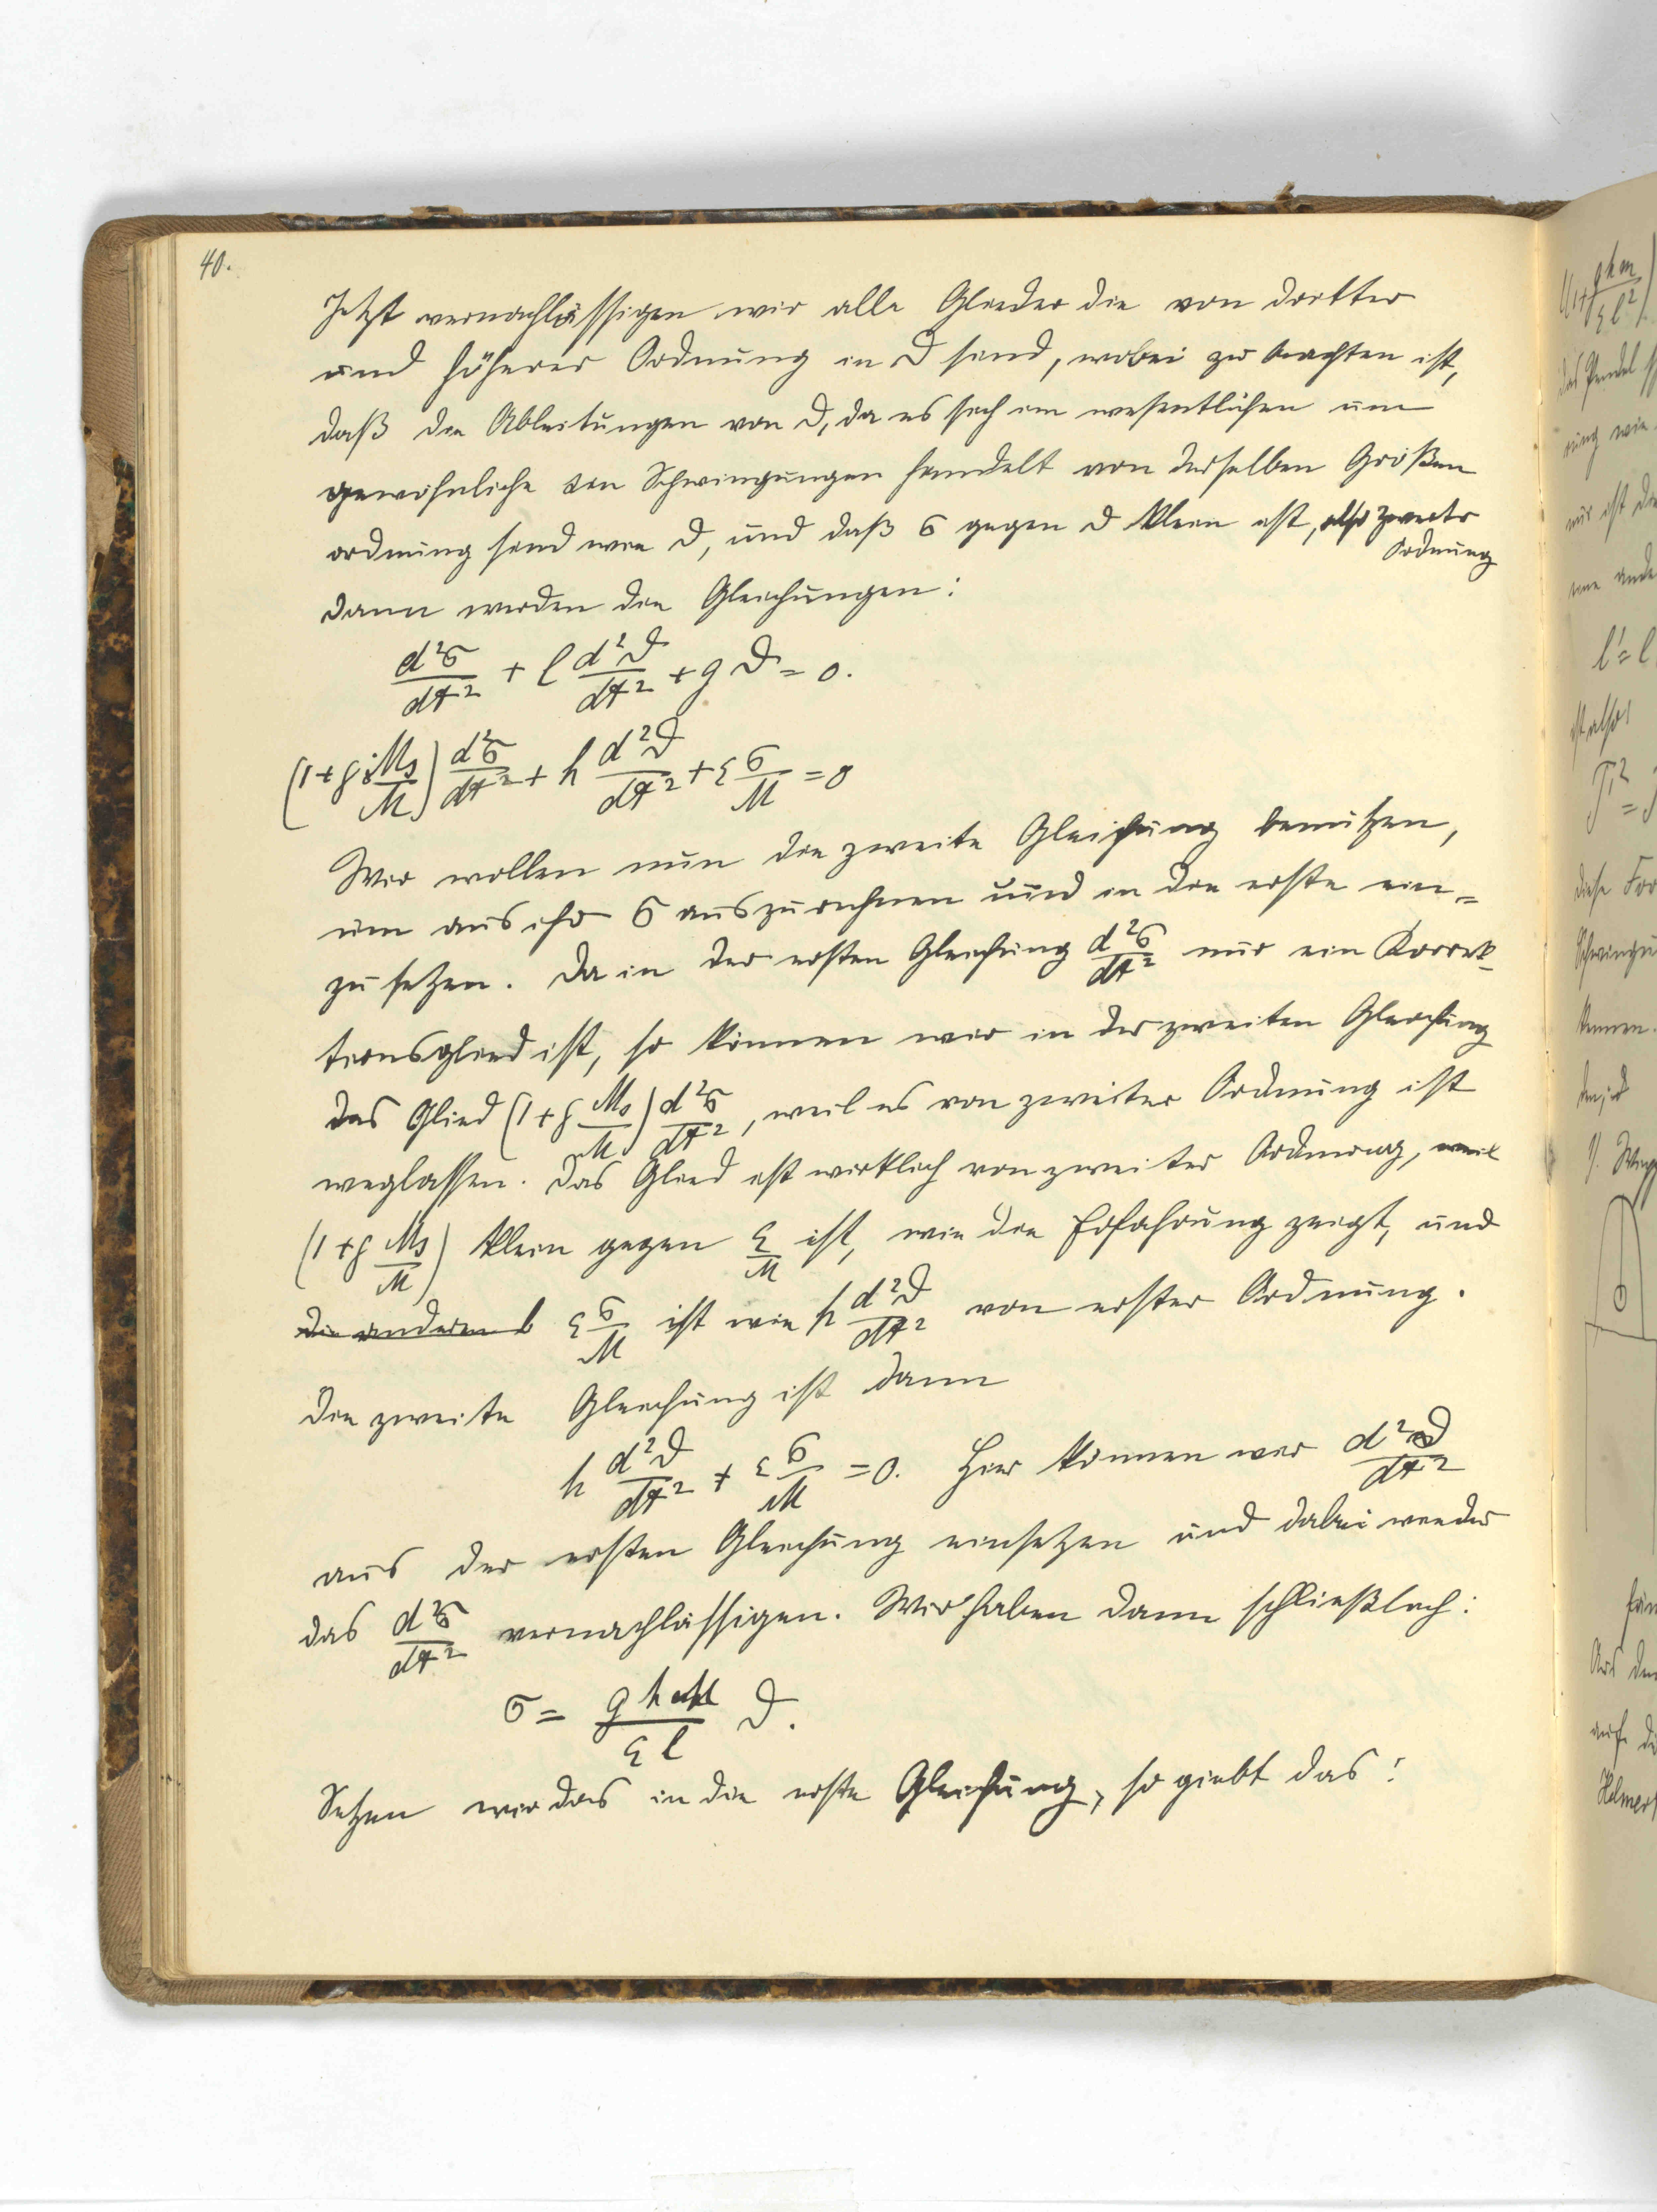 40.
Jetzt vernachlässigen wir alle Glieder die von dritter
und höherer Ordnung in ϑ sind, wobei zu beachten ist,
daß die Ableitungen von ϑ, da es sich im wesentlichen um
gewöhnliche Schwingungen handelt von derselben Größen
ordnung sind wie ϑ, und daß σ gegen ϑ klein ist, also zweiter
Ordnung
Dann werden die Gleichungen:
d²σ/dt² + l d²ϑ/dt² + g ϑ = 0.
(1+ρ Ms/M) d²σ/dt² + h d²ϑ/dt² + ε σ/M = 0
Wir wollen nun die zweite Gleichung benutzen,
um aus ihr σ auszurechnen und in die erste ein=
zusetzen. Da in der ersten Gleichung d²σ/dt² nur ein Korrek-
tionsglied ist, so können wir in der zweiten Gleichung
das Glied (1+ρ Ms/M) d²σ/dt², weil es von zweiter Ordnung ist
weglassen. Das Glied ist wirklich von zweiter Ordnung, weil
(1+ρ Ms/M) klein gegen ε/M ist, wie die Erfahrung zeigt, und
die anderen ε σ/M ist wie h d²ϑ/dt² von erster Ordnung.
Die zweite Gleichung ist dann
h d²ϑ/dt² + ε σ/M = 0. Hier können wir d²ϑ/dt²
aus der ersten Gleichung einsetzen und dabei wieder
das d²σ/dt² vernachlässigen. Wir haben dann schließlich:
σ = g h M/ε l ϑ.
Setzen wir das in die erste Gleichung, so giebt das:
l' = l
ist also:
das Pendel
nur ist die
diese
Schwingu